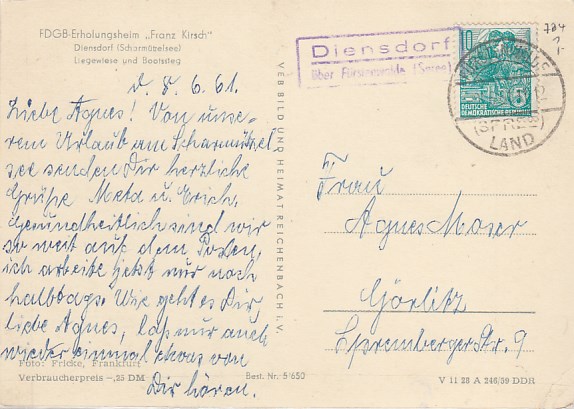 FDGB-Erholungsheim „Franz Kirsch"
Diensdorf (Scharmützelsee)
Liegewiese und Bootssteg
d. 8. 6. 61.
Liebe Agnes! Von unse-
rem Urlaub am Scharmützel-
see senden Dir herzliche
Grüße Meta u. Erich.
Gesundheitlich sind wir
so weit auf dem Posten,
ich arbeite jetzt nur noch
halbtags. Wie geht es Dir
liebe Agnes, laß nur auch
wieder einmal etwas von
Dir hören.
Foto: Fricke, Frankfurt
Verbraucherpreis -,25 DM
Best. Nr. 5/650
VEB BILD UND HEIMAT REICHENBACH i. V.
Diensdorf
über Fürstenwalde (Spree)
10
DEUTSCHE
DEMOKRATISCHE REPUBLIK
(SPREE)
LAND
724
Frau
Agnes Moser
Görlitz
Spremberger Str. 9
V 11 28 A 246/59 DDR